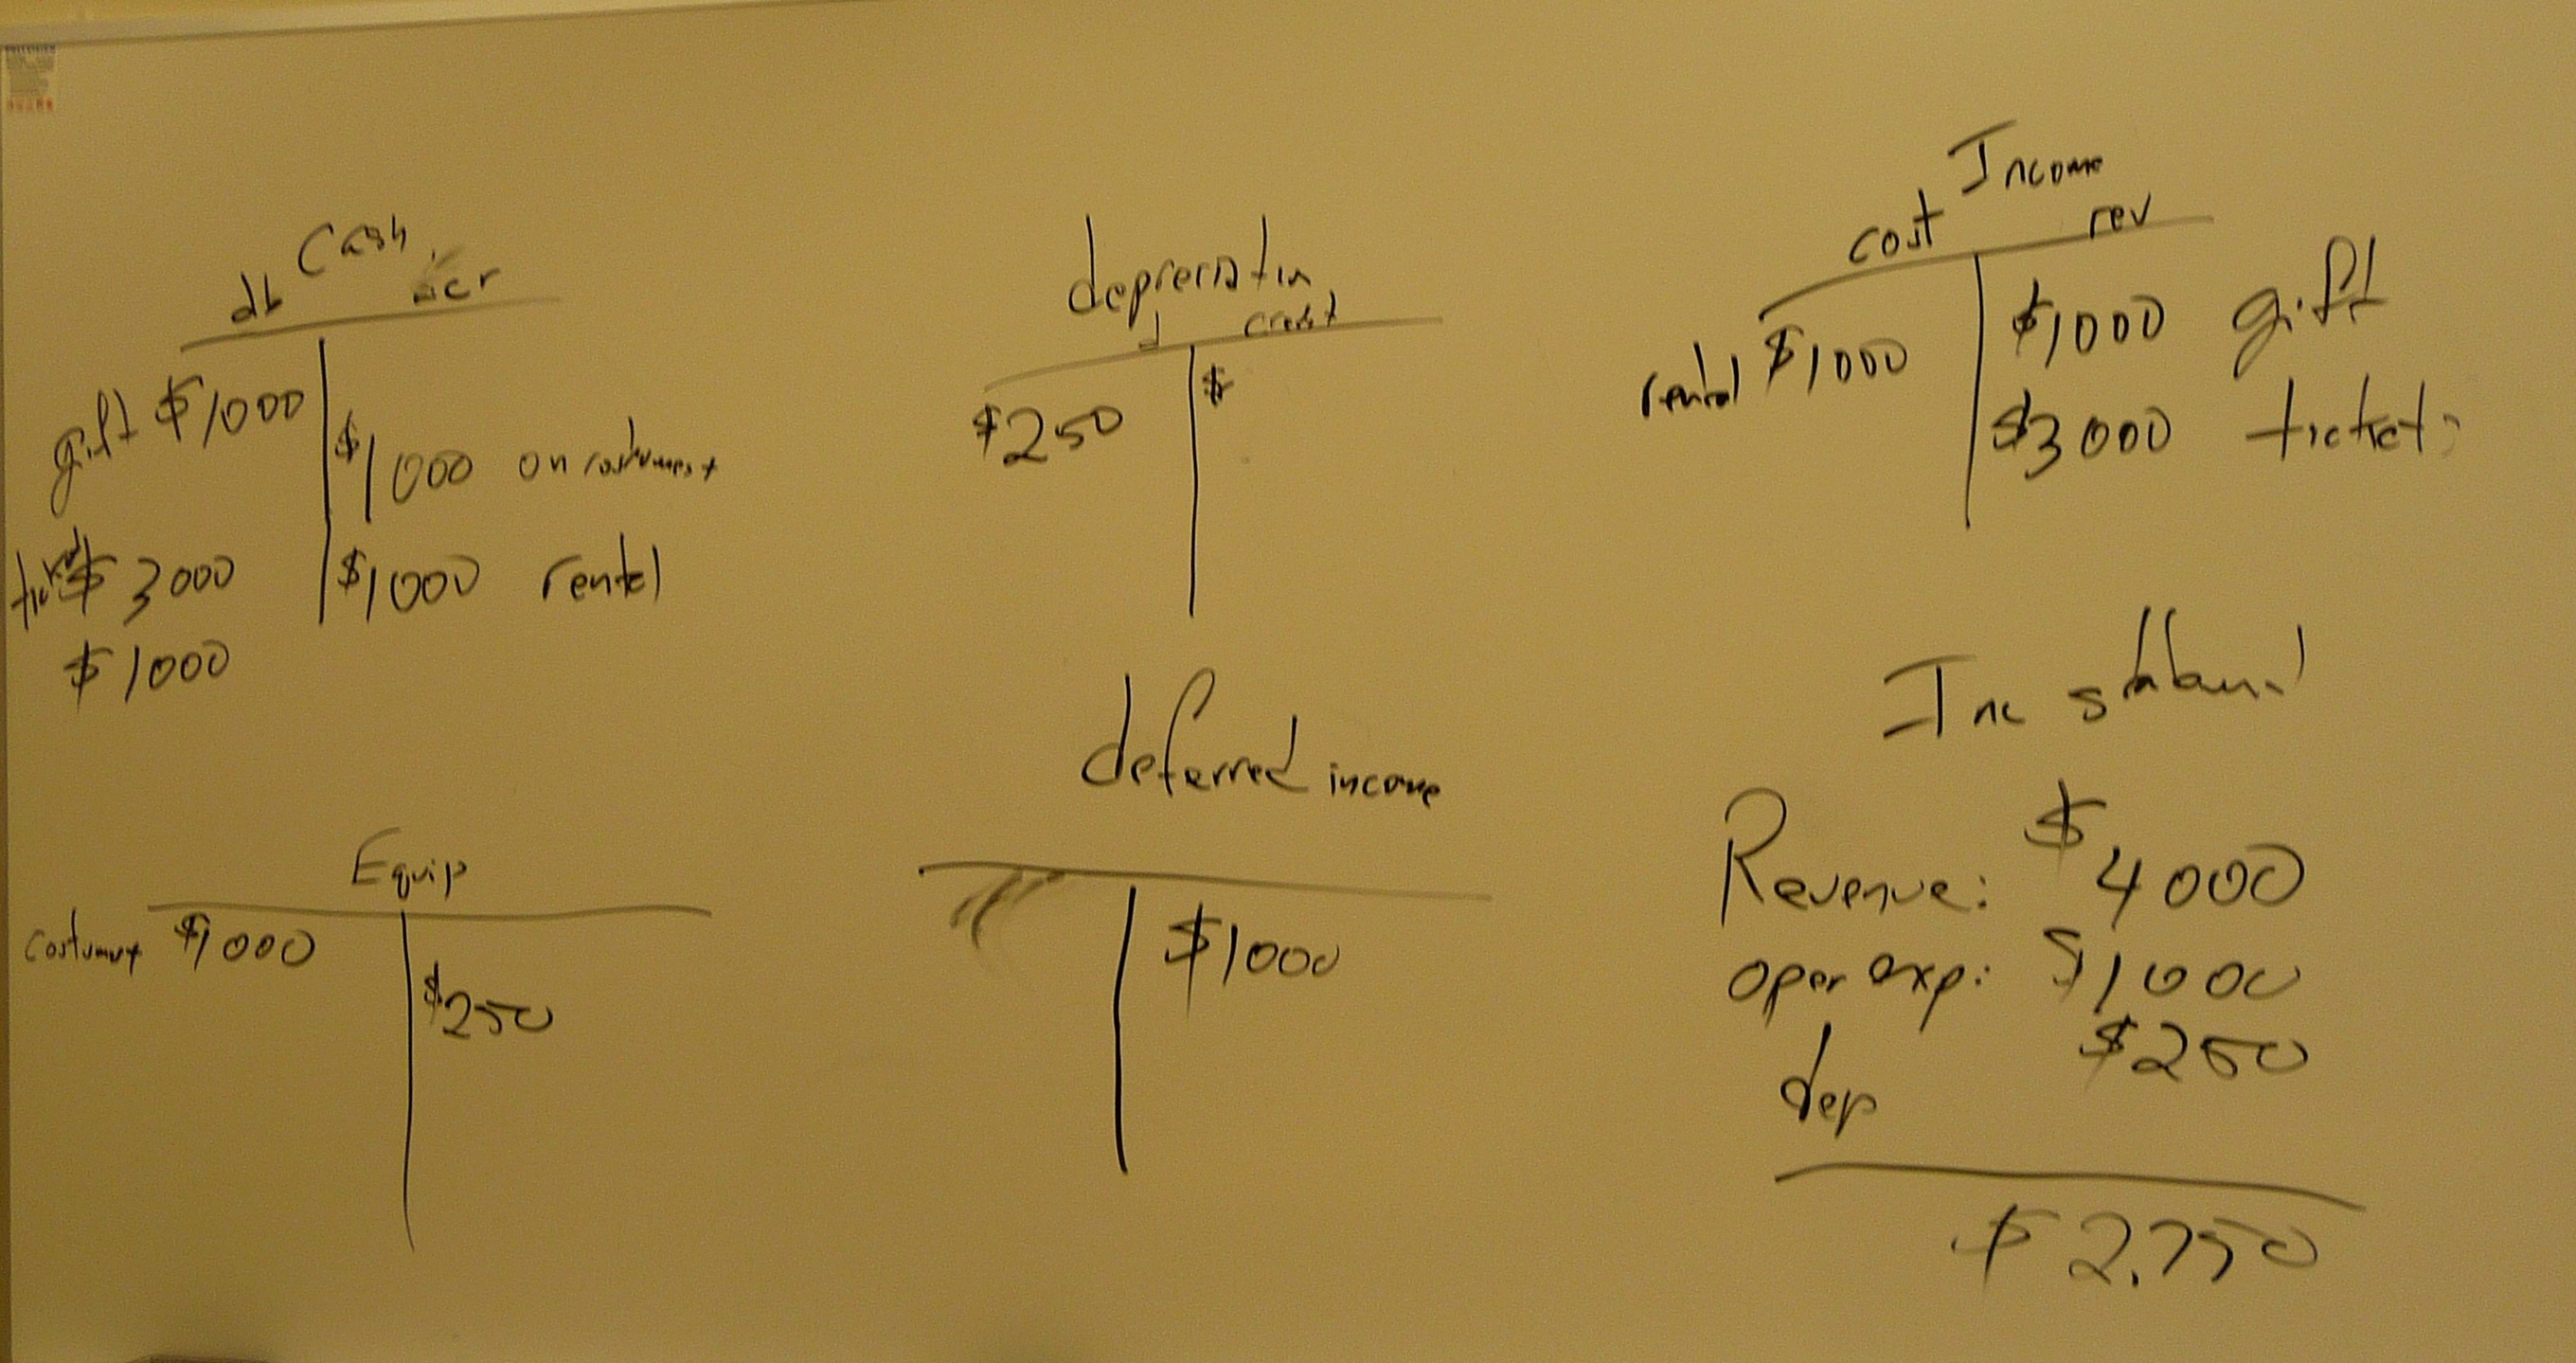 Cash
db cr
gift $1000
$1000 on costumes
ticket $3000
$1000 rental
$1000
Equip
$1000
$250
credit
d
$250
$
deferred income
$1000
Income
cost rev
rental $1000
$1000 gift
$3000 tickets
Inc
Revenue: $4000
oper exp: $1000
dep $250
$2,750